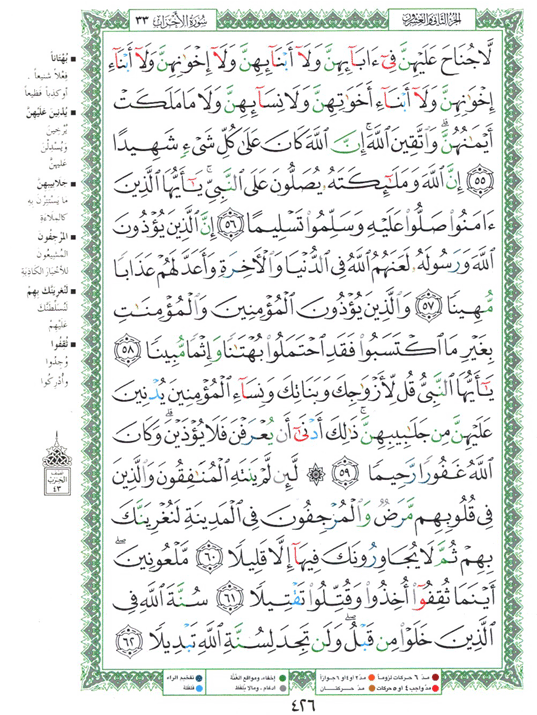 الجزء الثاني والعشرون
سُورَةُ الأَحْزَابِ ٣٣
لَّا جُنَاحَ عَلَيْهِنَّ فِىٓ ءَابَآئِهِنَّ وَلَآ أَبْنَآئِهِنَّ وَلَآ إِخْوَٰنِهِنَّ وَلَآ أَبْنَآءِ
إِخْوَٰنِهِنَّ وَلَآ أَبْنَآءِ أَخَوَٰتِهِنَّ وَلَا نِسَآئِهِنَّ وَلَا مَا مَلَكَتْ
أَيْمَٰنُهُنَّ ۗ وَٱتَّقِينَ ٱللَّهَ ۚ إِنَّ ٱللَّهَ كَانَ عَلَىٰ كُلِّ شَىْءٍ شَهِيدًا
٥٥ إِنَّ ٱللَّهَ وَمَلَٰٓئِكَتَهُۥ يُصَلُّونَ عَلَى ٱلنَّبِىِّ ۚ يَٰٓأَيُّهَا ٱلَّذِينَ
ءَامَنُوا۟ صَلُّوا۟ عَلَيْهِ وَسَلِّمُوا۟ تَسْلِيمًا ٥٦ إِنَّ ٱلَّذِينَ يُؤْذُونَ
ٱللَّهَ وَرَسُولَهُۥ لَعَنَهُمُ ٱللَّهُ فِى ٱلدُّنْيَا وَٱلْـَٔاخِرَةِ وَأَعَدَّ لَهُمْ عَذَابًا
مُّهِينًا ٥٧ وَٱلَّذِينَ يُؤْذُونَ ٱلْمُؤْمِنِينَ وَٱلْمُؤْمِنَٰتِ
بِغَيْرِ مَا ٱكْتَسَبُوا۟ فَقَدِ ٱحْتَمَلُوا۟ بُهْتَٰنًا وَإِثْمًا مُّبِينًا ٥٨
يَٰٓأَيُّهَا ٱلنَّبِىُّ قُل لِّأَزْوَٰجِكَ وَبَنَاتِكَ وَنِسَآءِ ٱلْمُؤْمِنِينَ يُدْنِينَ
عَلَيْهِنَّ مِن جَلَٰبِيبِهِنَّ ۚ ذَٰلِكَ أَدْنَىٰٓ أَن يُعْرَفْنَ فَلَا يُؤْذَيْنَ ۗ وَكَانَ
ٱللَّهُ غَفُورًا رَّحِيمًا ٥٩ ۞ لَّئِن لَّمْ يَنتَهِ ٱلْمُنَٰفِقُونَ وَٱلَّذِينَ
فِى قُلُوبِهِم مَّرَضٌ وَٱلْمُرْجِفُونَ فِى ٱلْمَدِينَةِ لَنُغْرِيَنَّكَ
بِهِمْ ثُمَّ لَا يُجَاوِرُونَكَ فِيهَآ إِلَّا قَلِيلًا ٦٠ مَّلْعُونِينَ ۖ
أَيْنَمَا ثُقِفُوٓا۟ أُخِذُوا۟ وَقُتِّلُوا۟ تَقْتِيلًا ٦١ سُنَّةَ ٱللَّهِ فِى
ٱلَّذِينَ خَلَوْا۟ مِن قَبْلُ ۖ وَلَن تَجِدَ لِسُنَّةِ ٱللَّهِ تَبْدِيلًا ٦٢
■ بُهْتَاناً
فِعْلاً شنيعاً .
أو كذباً فظيعاً
■ يُدْنِينَ عَلَيْهِنَّ
يُرْخِينَ
وَيُسْدِلْنَ
عَلَيْهِنَّ
■ جلابيبهنّ
ما يَسْتَتِرْنَ به
كالمِلاءَةِ
■ المُرْجِفُونَ
المُشِيعُون
للأخْبَارِ الكَاذِبَةِ
■ لَنُغْرِيَنَّكَ بِهِمْ
لَنُسَلِّطَنَّكَ
عَلَيْهِمْ
■ ثُقِفُوا
وُجِدُوا
وأُدْرِكُوا
الحزب
٤٣
مدّ ٦ حركات لزوماً
مدّ ٢ أو ٤ أو ٦ جوازاً
إخفاء، ومواقع الغُنَّة
تفخيم الراء
مدّ واجب ٤ أو ٥ حركات
مدّ حركتان
ادغام، ومالا يُلفظ
قلقلة
٤٢٦